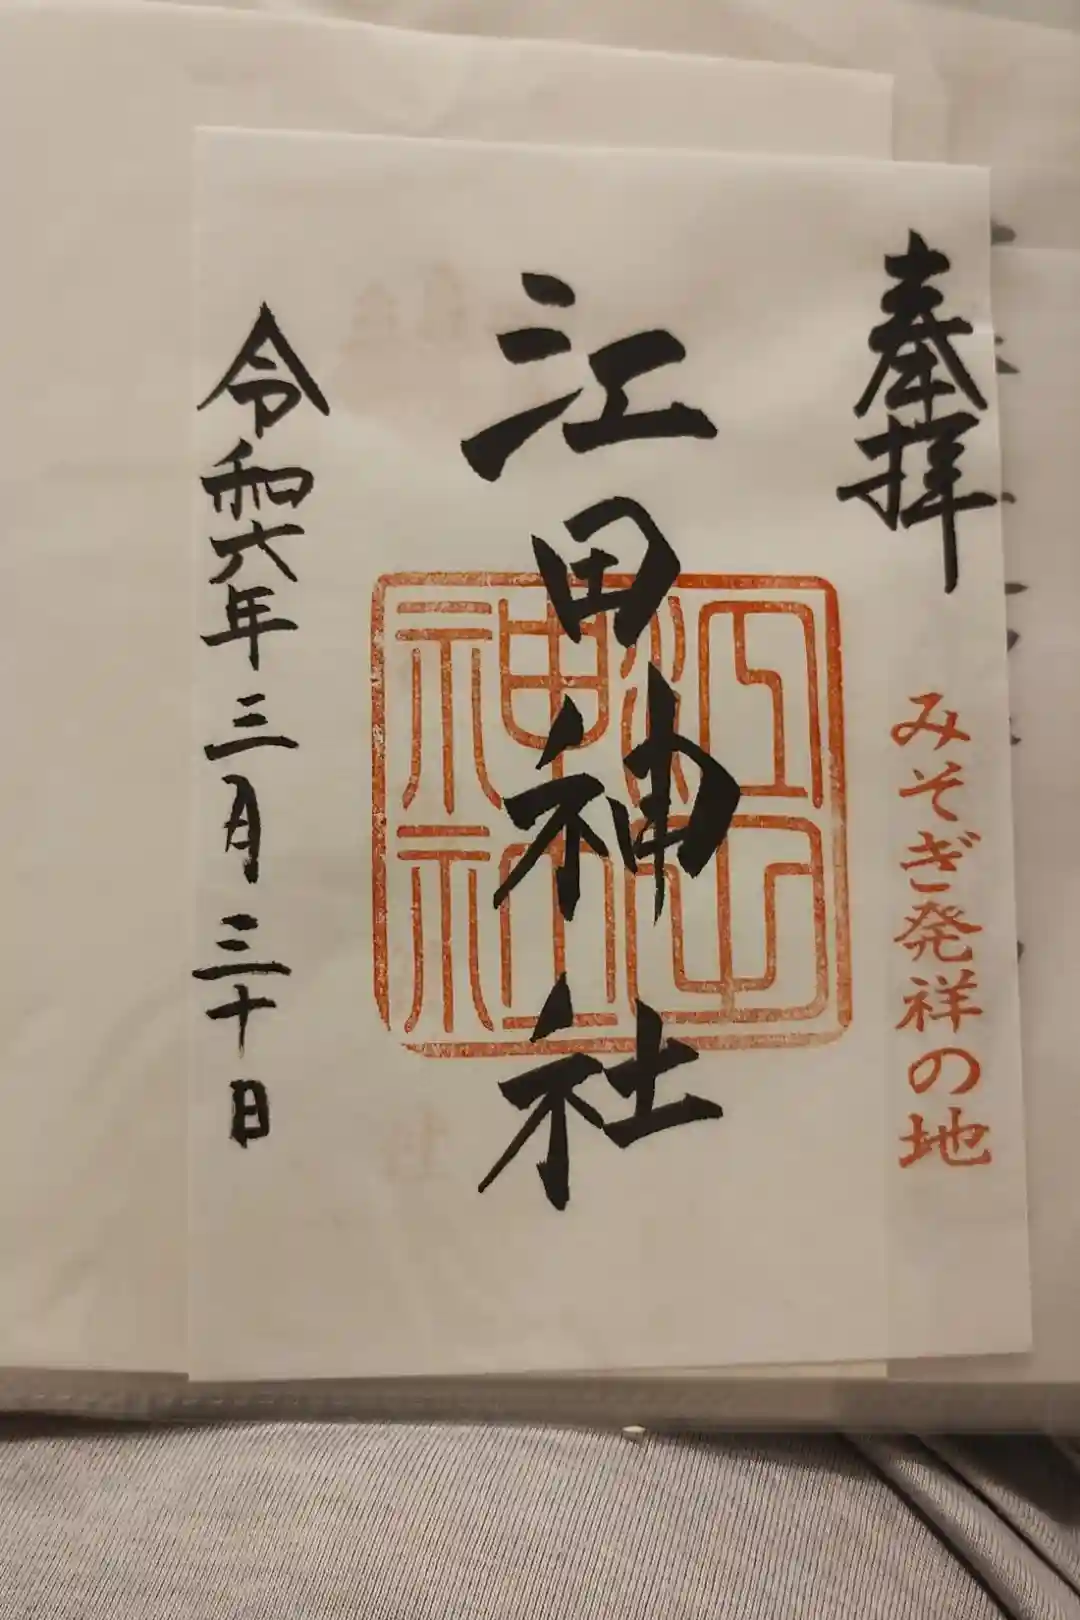 奉拝
みそぎ発祥の地
江田神社
江田
神社
令和六年三月三十日